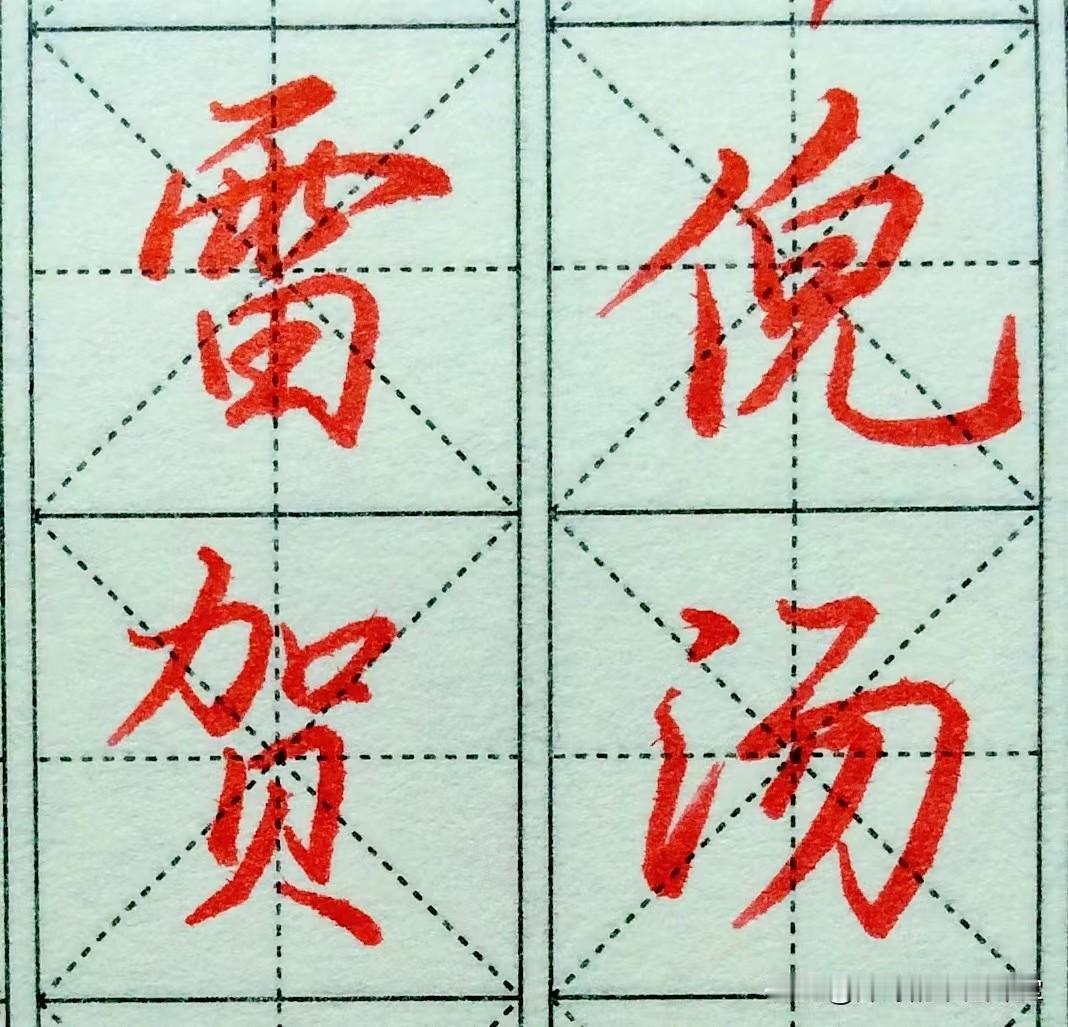 雷贺
倪汤